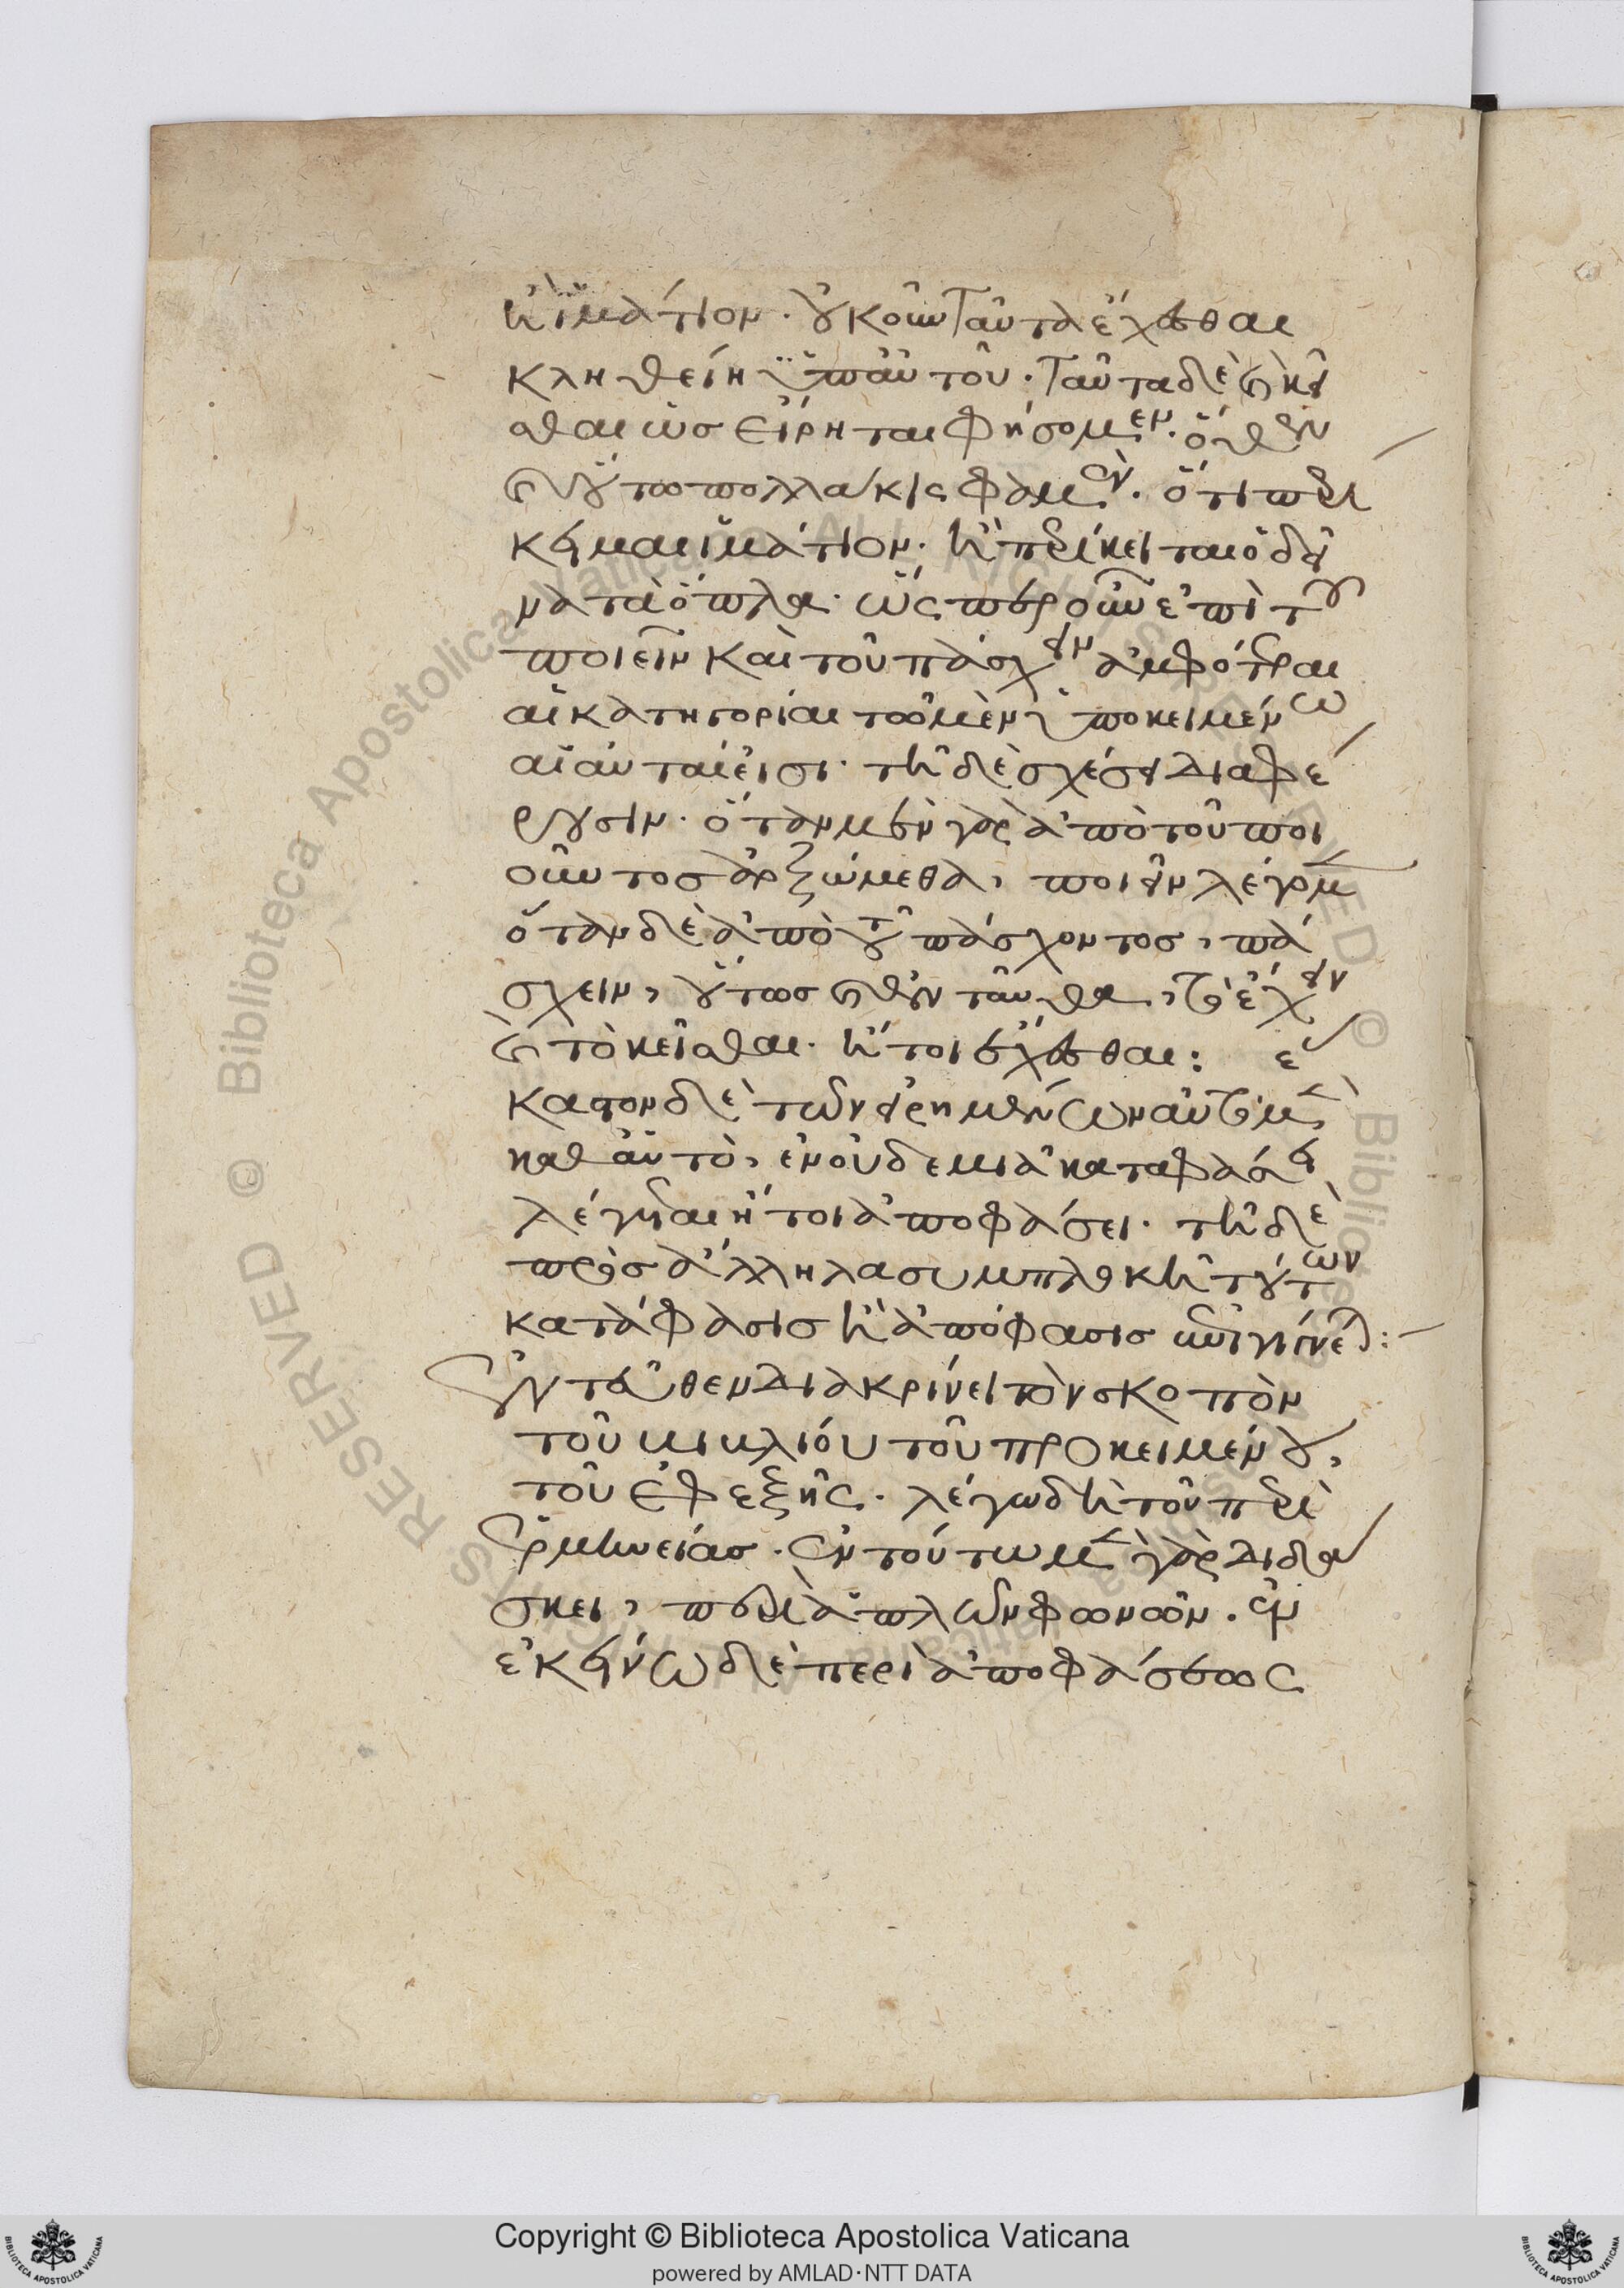 ἢ ἱμάτιον. οὐκοῦν ταῦτα ἔχεσθαι
κληθείη ὑπ' αὐτοῦ. ταῦτα δὲ καὶ κεῖ
σθαι ὡς εἴρηται φήσομεν. ὅθεν
καὶ οὕτω πολλάκις φαμέν. ὅτι περί
κειμαι ἱμάτιον. ἢ περίκειται ὁ δεῖ
να τὰ ὅπλα. ὥσπερ οὖν ἐπὶ τοῦ
ποιεῖν καὶ τοῦ πάσχειν ἀμφότεραι
αἱ κατηγορίαι τῶ μὲν ὑποκειμένω
αἱ αὐταί εἰσι. τῆ δὲ σχέσει διαφέ
ρουσιν. ὅταν μὲν γὰρ ἀπὸ τοῦ ποι
οῦντος ἀρξώμεθα, ποιεῖν λέγομεν
ὅταν δὲ ἀπὸ τοῦ πάσχοντος, πά
σχειν, οὕτως κἀνταῦθα, τὸ ἔχειν
καὶ τὸ κεῖσθαι. ἤτοι ἔχεσθαι: ἕ
καστον δὲ τῶν εἰρημένων αὐτὸ μὲν
καθ' αὑτὸ, ἐν οὐδεμιᾶ καταφάσει
λέγεται ἤτοι ἀποφάσει. τῆ δὲ
πρὸς ἄλληλα συμπλοκῆ τούτων
κατάφασις ἢ ἀπόφασις γίνεται:
ἐνταῦθεν διακρίνει τὸν σκοπὸν
τοῦ βιβλίου τοῦ προκειμένου,
τοῦ ἐφεξῆς. λέγω δὴ τοῦ περὶ
ἑρμηνείας. ἐν τούτω μὲν γὰρ διδά
σκει, περὶ ἁπλῶν φωνῶν. ἐν
ἐκείνω δὲ περὶ ἀποφάσεως
Copyright © Biblioteca Apostolica Vaticana
powered by AMLAD·NTT DATA